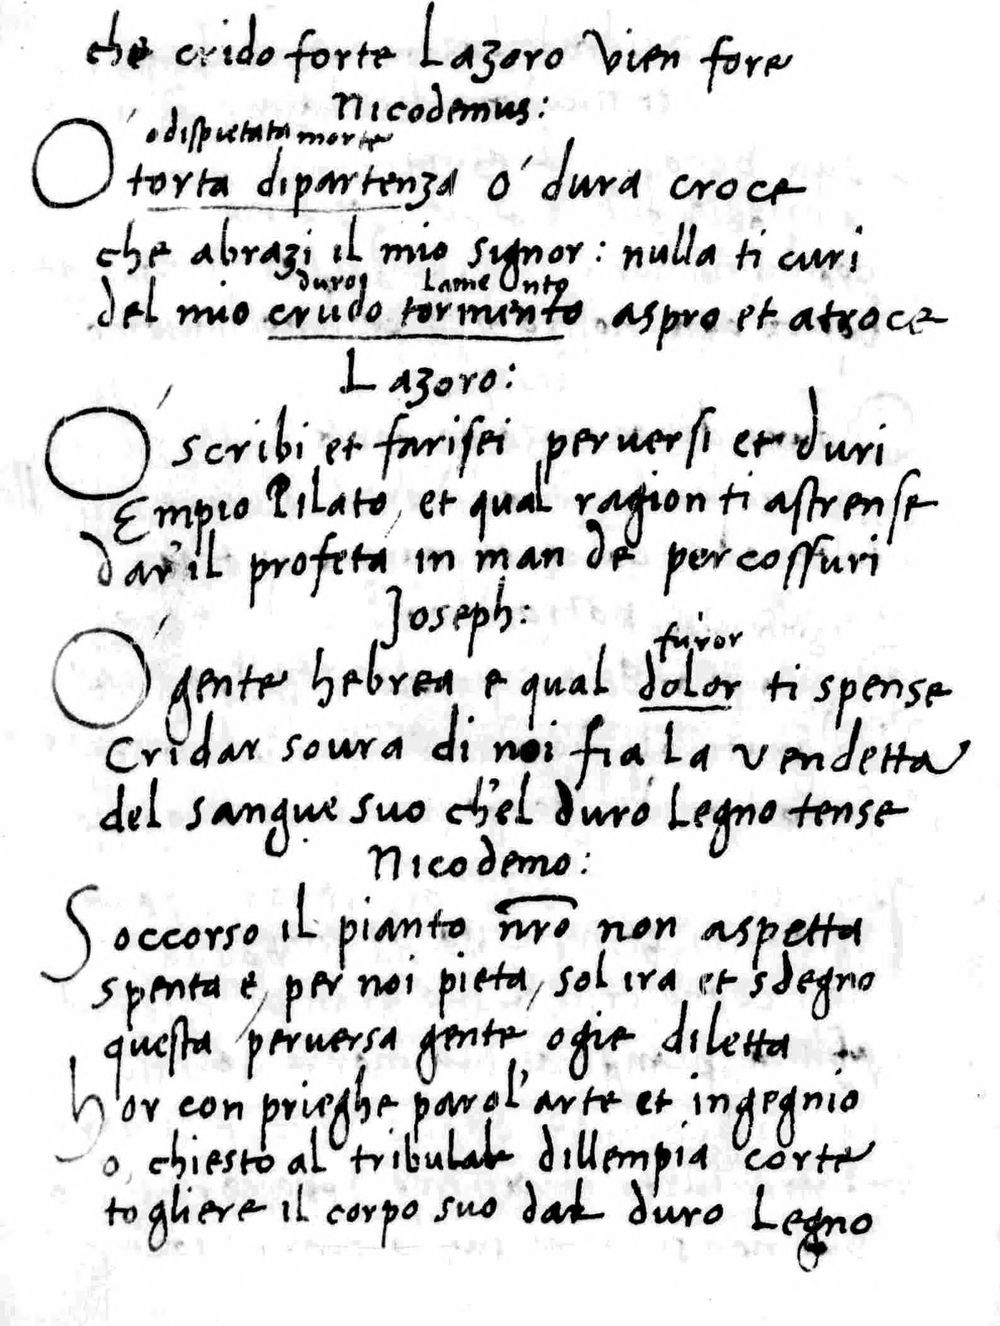 che crido forte Lazoro vien fore
Nicodemus:
o dispietata morte
O torta dipartenza o' dura croce
che abrazi il mio signor: nulla ti curi
duro Lamento
del mio crudo tormento aspro et atroce
Lazoro:
O scribi et farisei perversi et duri
Empio Pilato, et qual ragion ti astrense
dar' il profeta in man de percossuri
Joseph:
furor
O gente hebrea e qual dolor ti spense
Cridar soura di noi fia La vendetta
del sangue suo ch'el duro Legno tense
Nicodemo:
Soccorso il pianto nro non aspetta
spenta e, per noi pieta, sol ira et sdegno
questa perversa gente ogie diletta
Hor con prieghe parol' arte et ingegnio
o, chiesto al dillempia corte
togliere il corpo suo duro Legno